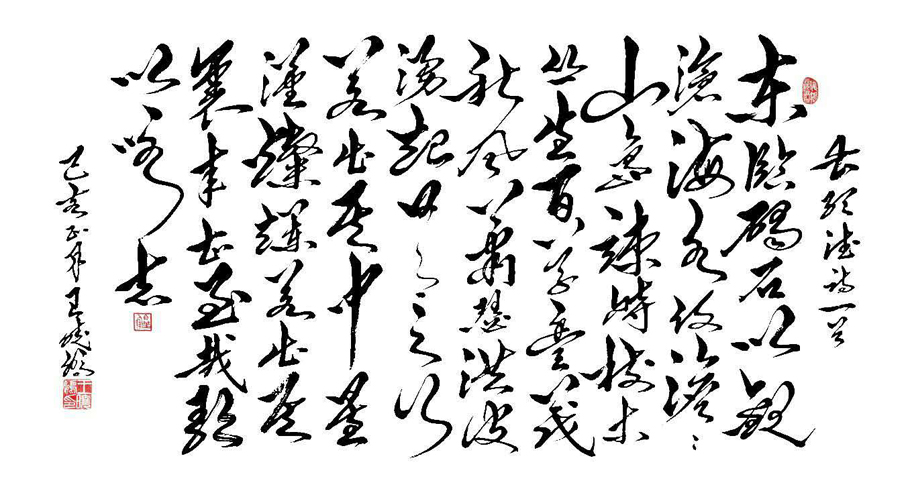 東臨碣石以觀
滄海水何澹澹
山島竦峙樹木
叢生百草豐茂
秋風蕭瑟洪波
湧起日月之行
若出其中星
漢燦爛若出其
裏幸甚至哉歌
以詠志
己亥正月王